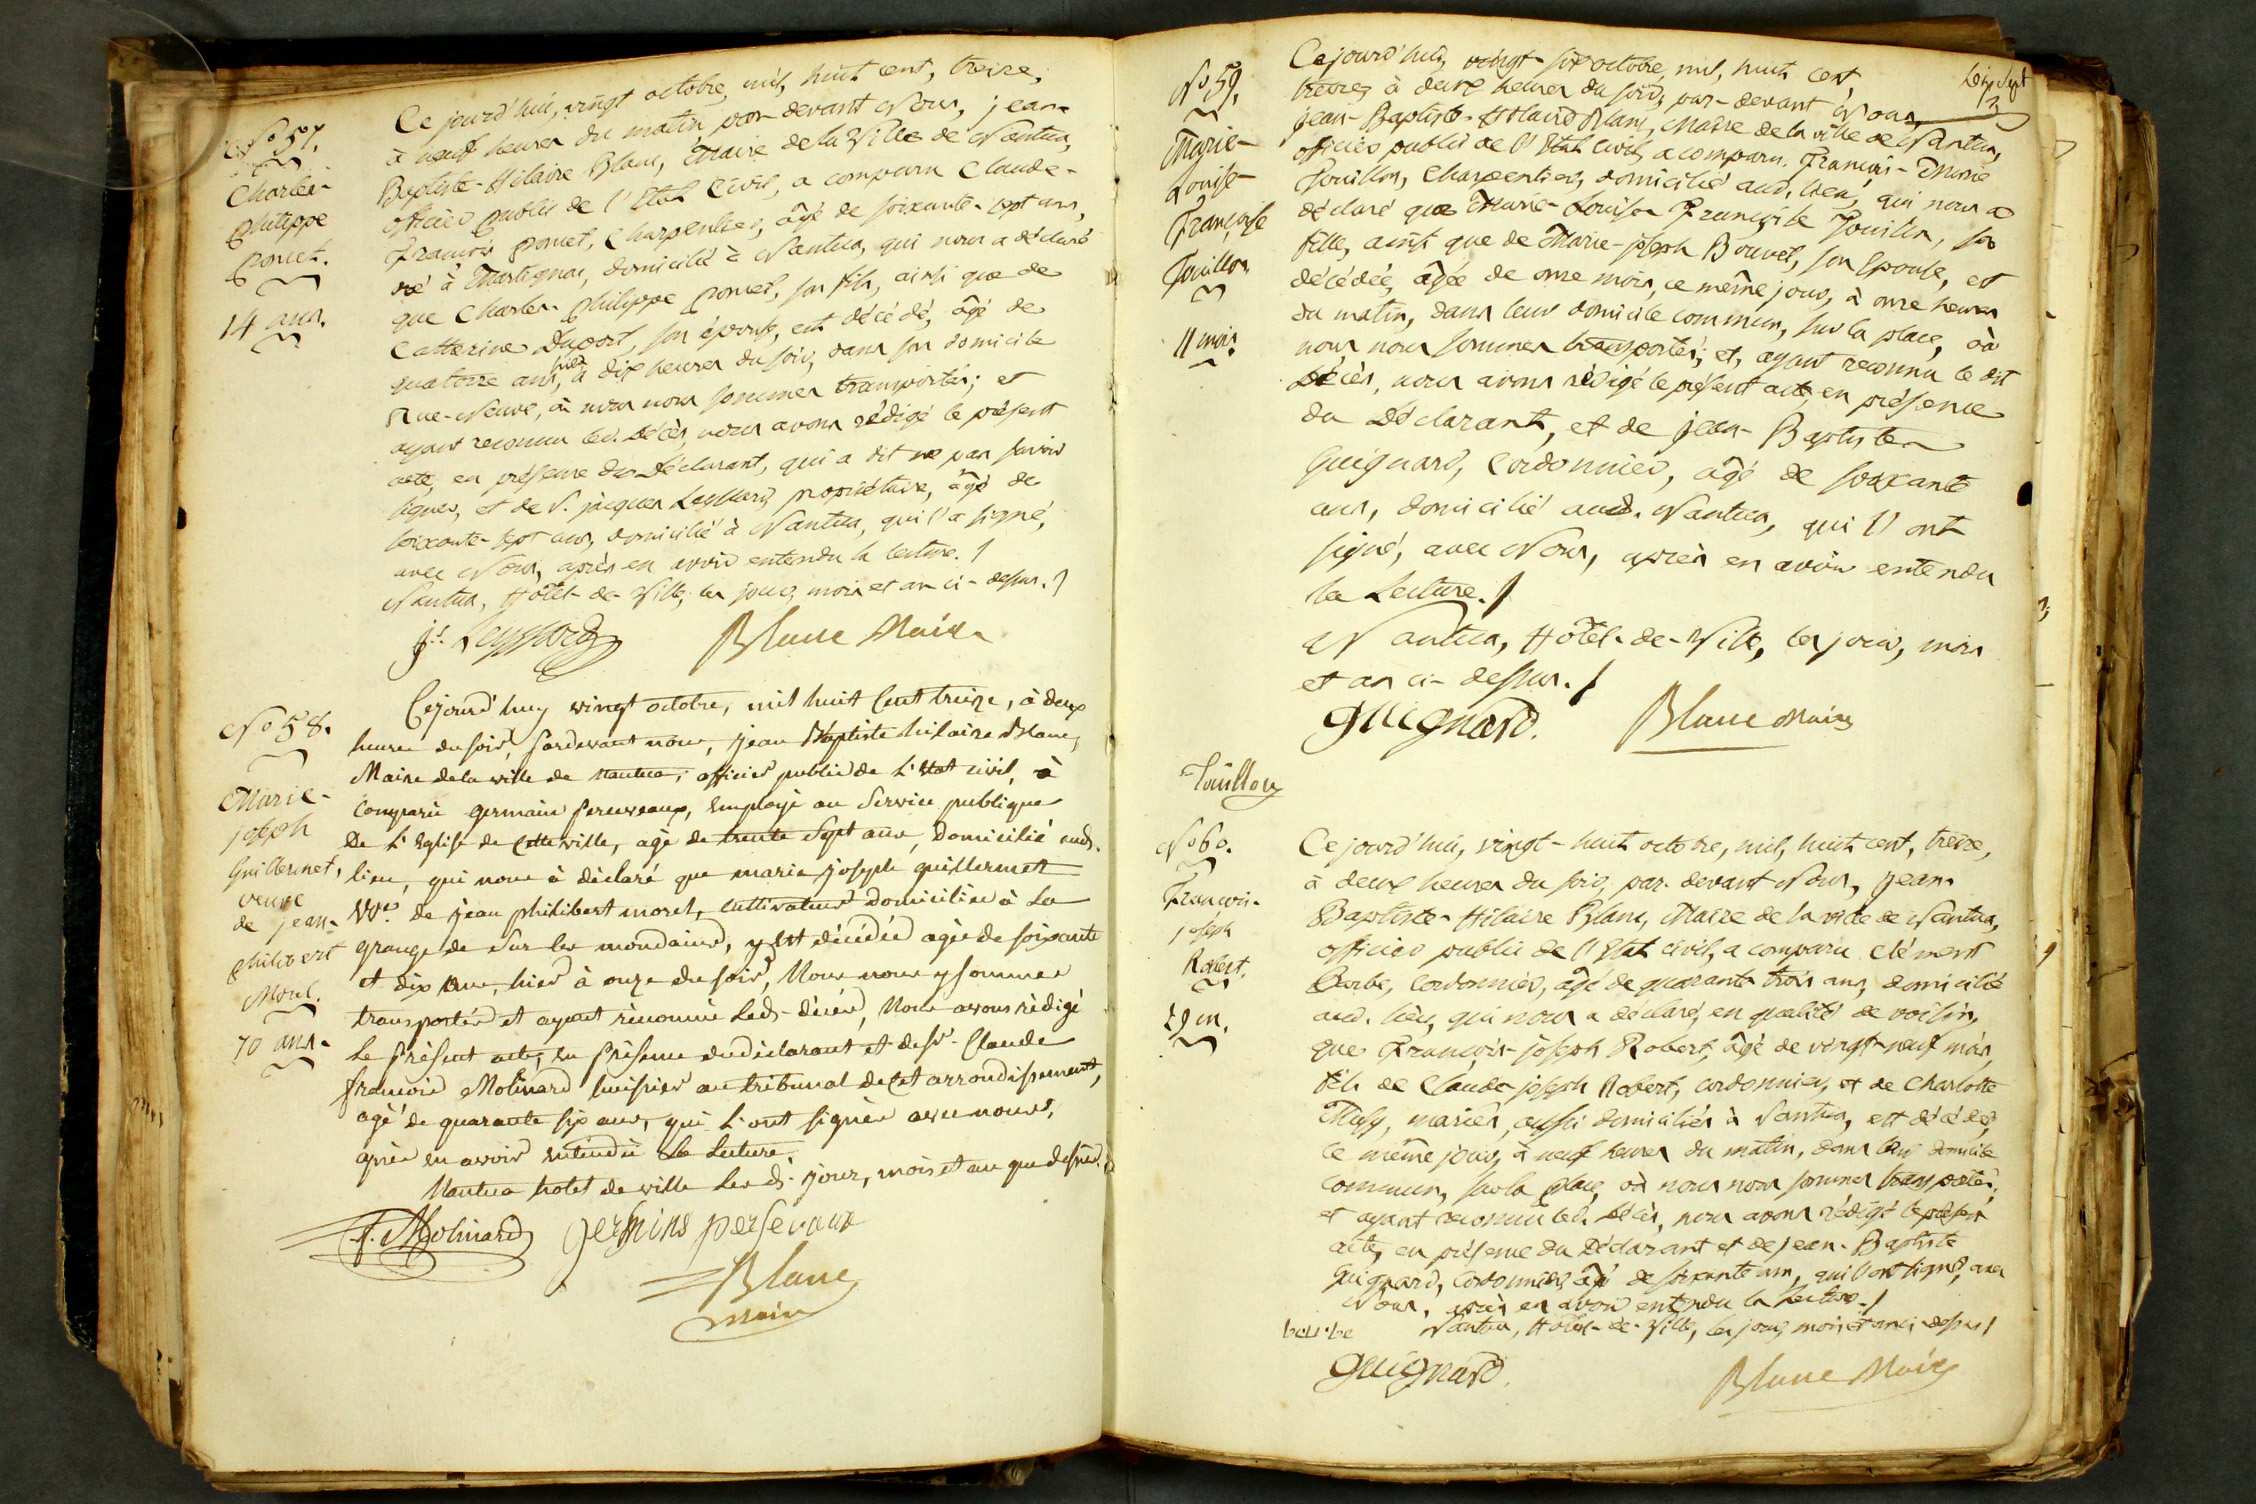 No 57.
Charles-
Philippe
Poncet.
14 ans.
Ce jourd'hui, vingt octobre, mil, huit cent, treize,
à neuf heures du matin par-devant Nous, jean-
Baptiste-Hilaire Blanc, Maire de la Ville de Nantua,
officier public de l'Etat Civil, a comparu Claude-
François Poncet, Charpentier, âgé de soixante-sept ans,
né à Martignat, domicilié à Nantua, qui nous a déclaré
que Charles-Philippe Poncet, son fils, ainsi que de
Catherine Duport, son épouse, est décédé, âgé de
quatorze ans, hier à dix heures du soir, dans son domicile
Rue-Neuve, où nous nous sommes transportés; et
ayant reconnu led. Décès, nous avons rédigé le présent
acte, en présence du Déclarant, qui a dit ne pas savoir
signer, et de S. jacques Leyssard, propriétaire, âgé de
soixante-sept ans, domicilié à Nantua, qui l'a signé,
avec Nous, après en avoir entendu la lecture. /
Nantua, Hôtel-de-Ville, les jour, mois et an ci-dessus. /
js. Leyssard Blanc Maire
No 58.
Marie-
joseph
Guillermet,
veuve
de jean-
Philibert
Morel.
70 ans.
Cejourd'huy vingt octobre, mil huit Cent treize, à deux
heures du soir, pardevant nous, jean Baptiste hilaire Blanc,
Maire de la ville de nantua, officier public de L'Etat civil, à
Comparu germain perseveaux, Employé au Service publique
De L'Eglise de Cette ville, agé de trente Sept ans, Domicilié aud.
lieu, qui nous à déclaré que marie joseph guillermet
Vve. de jean philibert morel, Cultivateur Domiciliée à La
grange de sur les mondains, y Est décédée agée de soixante
et dix ans, hier à onze du soir, Nous nous y sommes
transportés et ayant réconnu Led. décès, Nous avons rédigé
Le présent acte, en présence du déclarant et de sr. Claude
françois Molinard huissier au tribunal de Cet arrondissement,
agé de quarante six ans, qui L'ont signée avec nous,
après en avoir entendu La Lecture.
Nantua hotel de ville Les ds. jour, mois et an que dessus.
f. Molinard germins persevaux
Blanc
maire
Dix sept
No 59.
Marie-
Louise-
Françoise
Jouillon
11 mois.
Ce jourd'hui, vingt-six octobre, mil, huit cent,
treize, à deux heures du soir, par-devant Nous,
jean-Baptiste-Hilaire Blanc, Maire de la ville de Nantua,
officier public de l'Etat Civil, a comparu François-Marie
Jouillon, Charpentier, domicilié aud. lieu, qui nous a
déclaré que Marie-Louise-Françoise Jouillon, sa
fille, ainsi que de Marie-joseph Bouvet, son Epouse, est
décédée, âgée de onze mois, ce même jour, à onze heures
du matin, dans leur domicile commun, sur la place, où
nous nous sommes transportés; et, ayant reconnu le dit
Décès, nous avons rédigé le présent acte, en présence
du Déclarant, et de jean-Baptiste
Guignard, Cordonnier, âgé de soixante
ans, domicilié aud. Nantua, qui l'ont
signé, avec Nous, après en avoir entendu
la Lecture. /
Nantua, Hôtel-de-Ville, les jour, mois
et an ci-dessus. /
guignard. Blanc Maire
Jouillon
No 60.
François-
joseph
Robert.
29 m.
Ce jourd'hui, vingt-huit octobre, mil, huit cent, treize,
à deux heures du soir, par-devant Nous, jean-
Baptiste-Hilaire Blanc, Maire de la ville de Nantua,
officier public de l'Etat civil, a comparu Clément
Barbe, Cordonnier, âgé de quarante trois ans, domicilié
aud. lieu, qui nous a déclaré, en qualité de voisin,
que François-joseph Robert, âgé de vingt-neuf mois,
fils de Claude-joseph Robert, cordonnier, et de Charlotte
mariés, aussi domiciliés à Nantua, est décédé,
ce même jour, à neuf heures du matin, dans leur domicile
commun, sur la place, où nous nous sommes transportés;
et ayant reconnu led. Décès, nous avons rédigé le présent
acte, en présence du Déclarant et de jean-Baptiste
Guignard, Cordonnier, âgé de soixante ans, qui l'ont signé, avec
Nous, après en avoir entendu la Lecture. /
Nantua, Hôtel-de-Ville, les jour, mois et an ci-dessus /
barbe
guignard. Blanc Maire